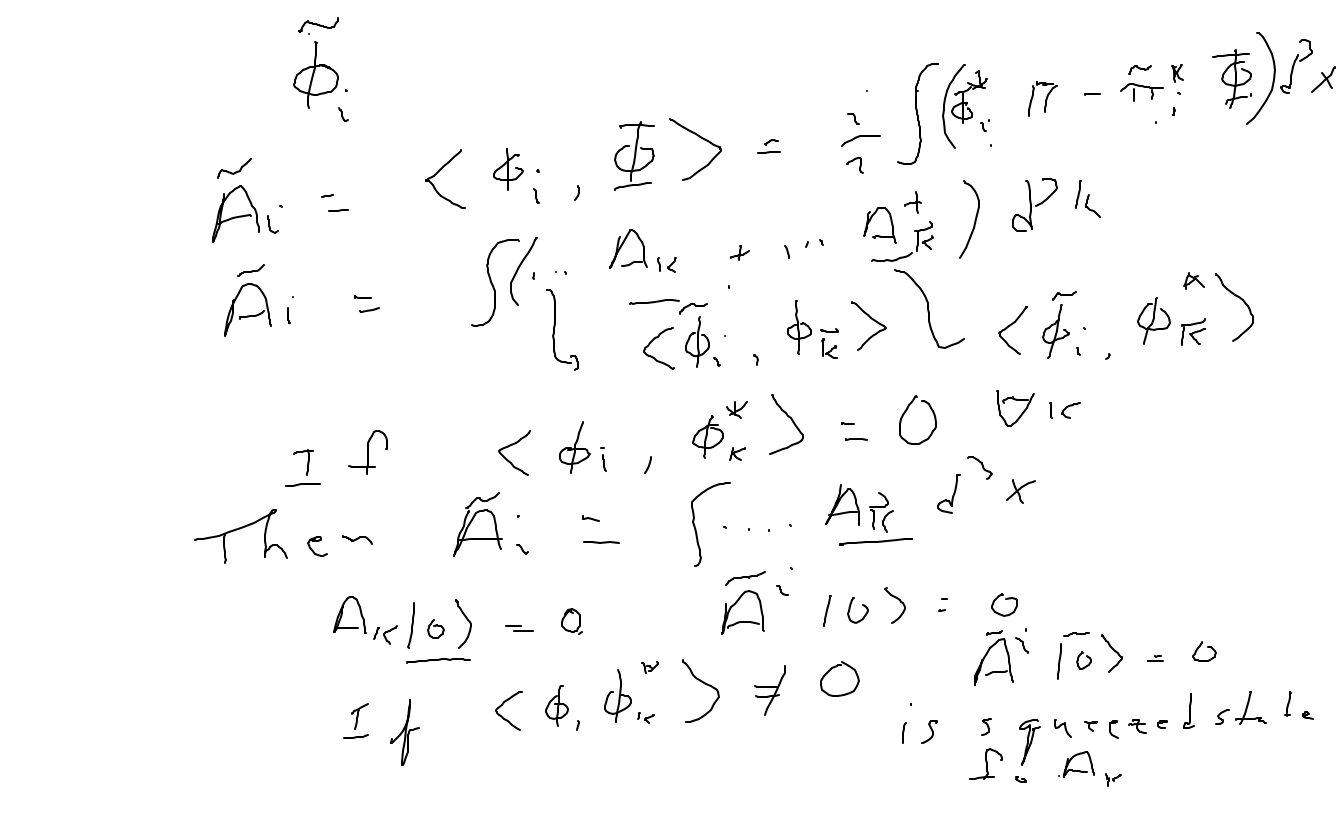 ϕ̃ᵢ
Ãᵢ = < ϕᵢ, Φ > = i/2 ∫(ϕ̃ᵢ* Π − π̃ᵢ* Φ) d³x
Ãᵢ = ∫(... A_k + ... A_k⁺) d³k
<ϕ̃ᵢ, ϕ_k> <ϕ̃ᵢ, ϕ_k*>
If < ϕᵢ, ϕ_k* > = 0 ∀k
Then Ãᵢ = ∫ .... A_k d³x
A_k|0> = 0 Ãⁱ |0> = 0
If < ϕ, ϕ_k* > ≠ 0 Ãⁱ |0̃> = 0
is squeezed state
fo A_k